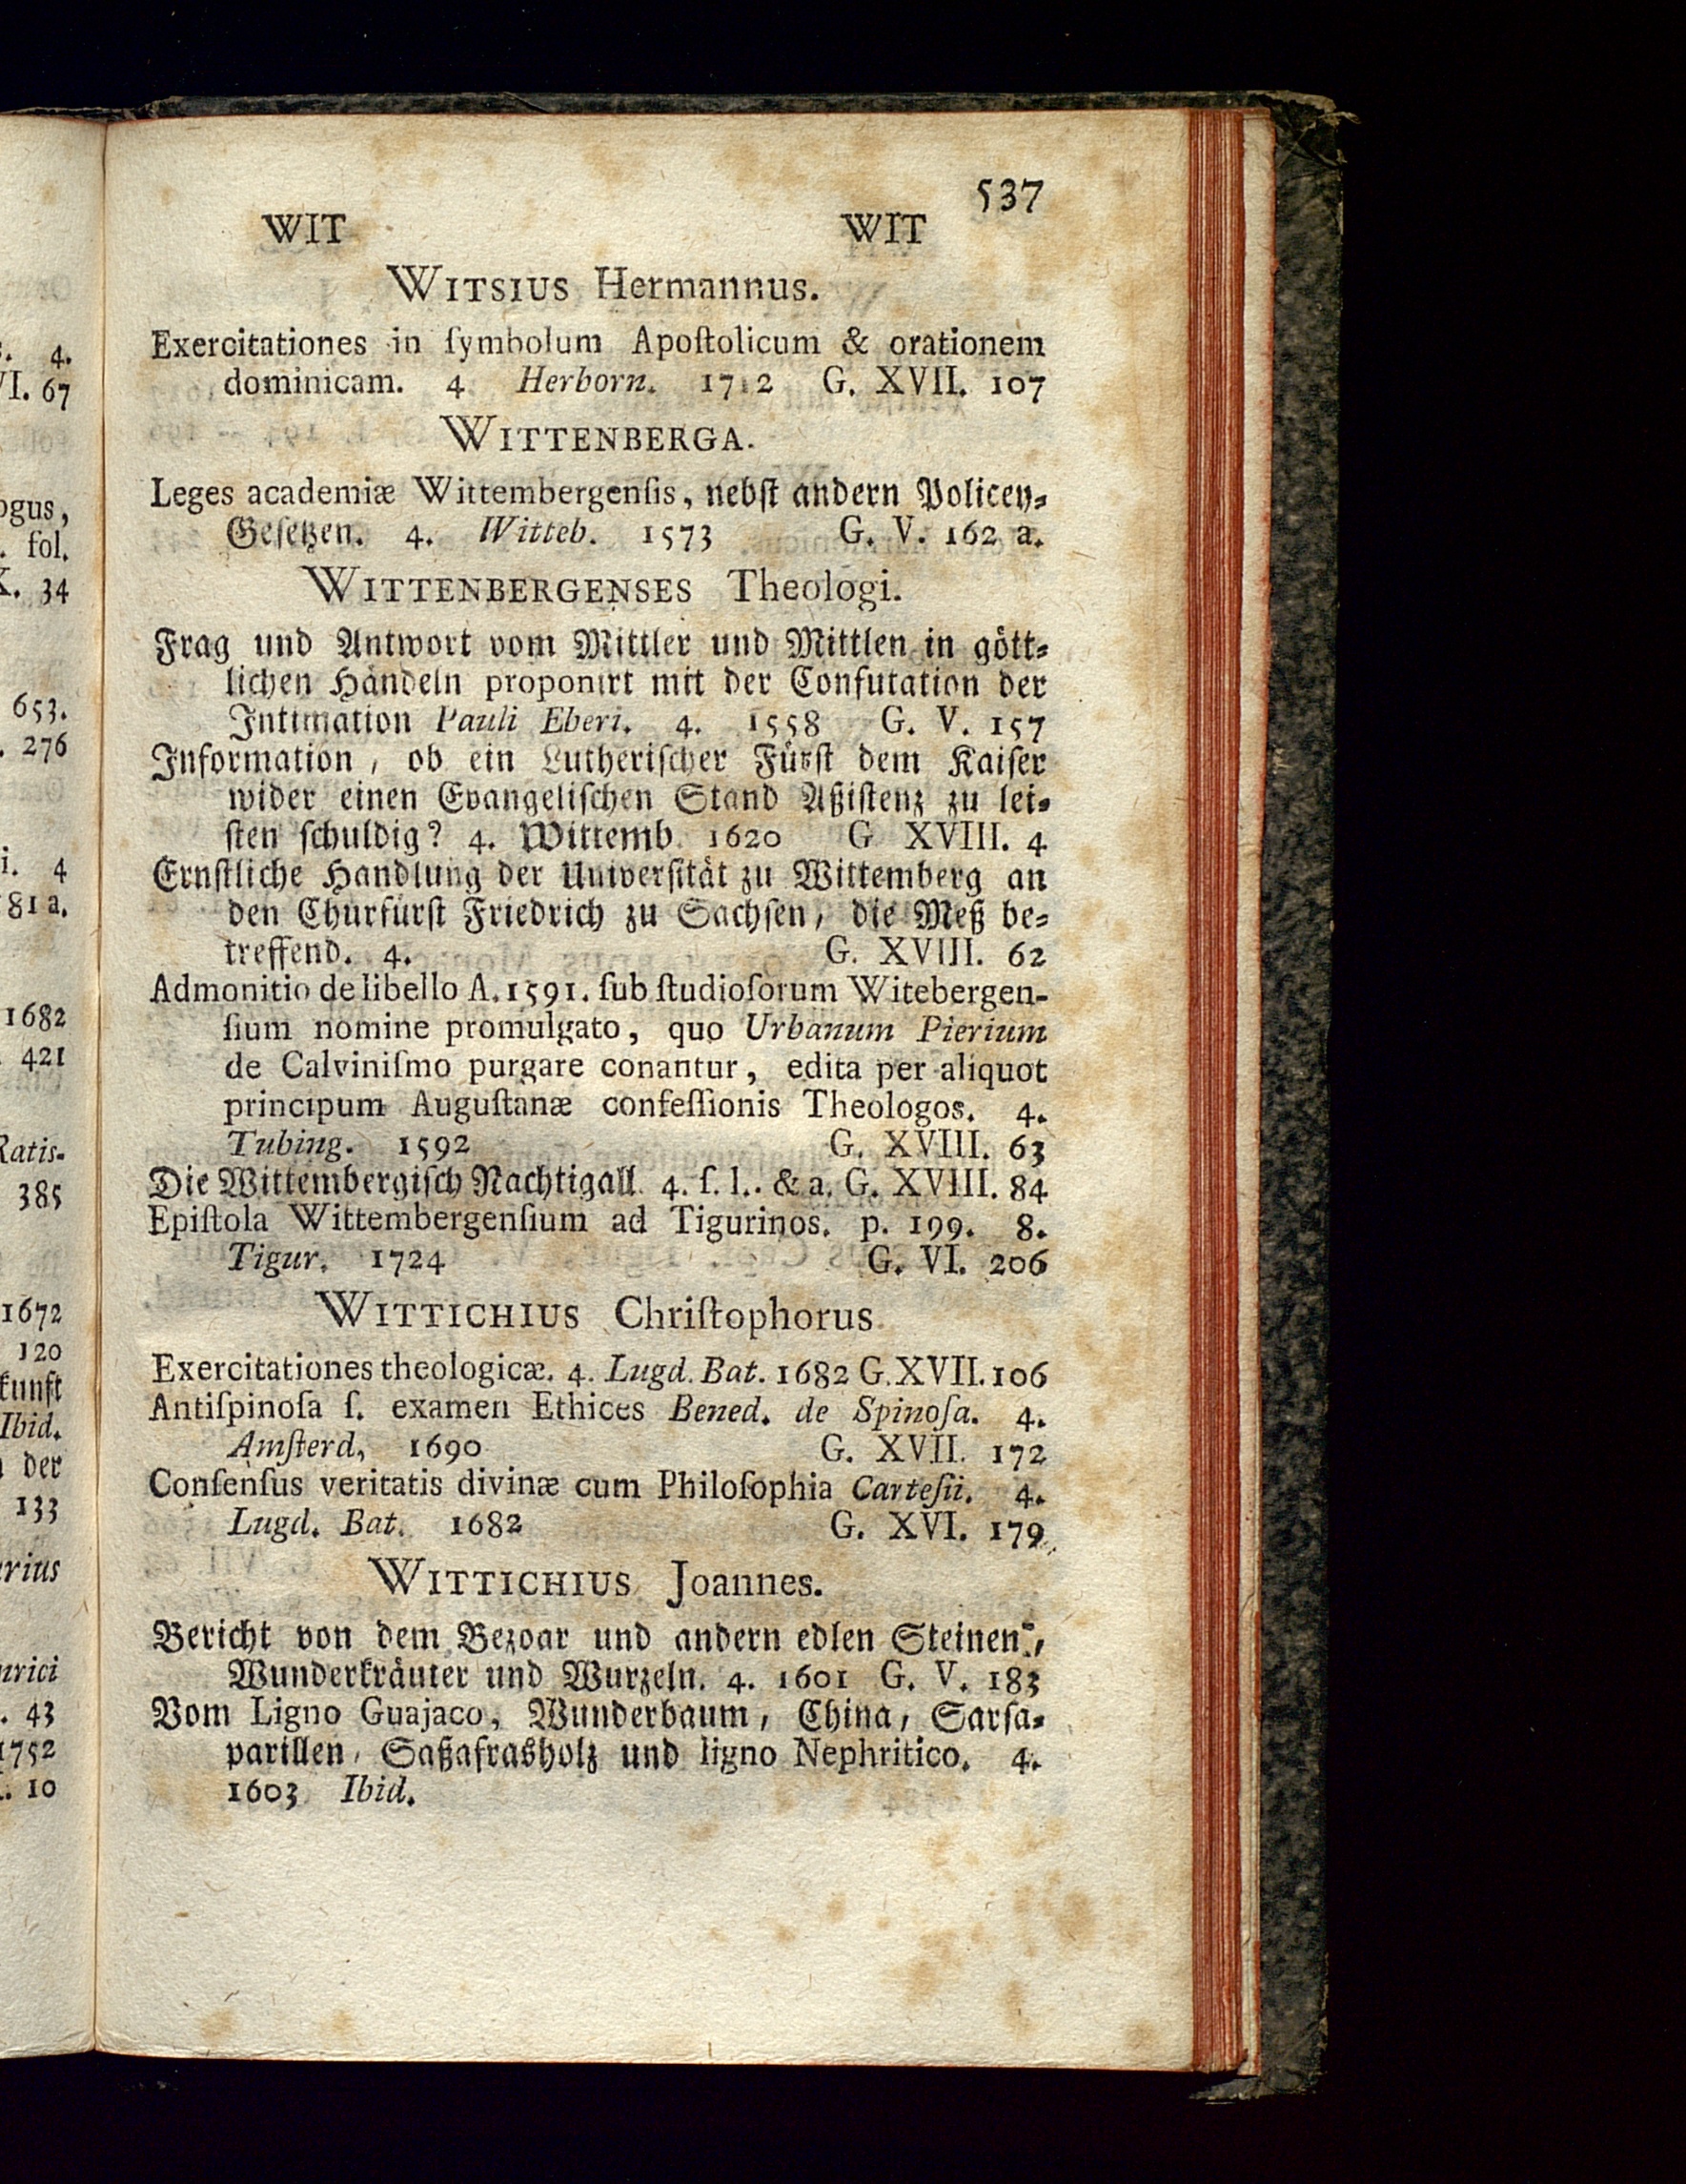 537
WIT WIT
WITSIUS Hermannus.
Exercitationes in ſymbolum Apoſtolicum & orationem
dominicam. 4 Herborn. 1712 G. XVII. 107
WITTENBERGA.
Leges academiæ Wittembergenſis, nebſt andern Policey-
Geſetzen. 4. Witteb. 1573 G. V. 162 a.
WITTENBERGENSES Theologi.
Frag und Antwort vom Mittler und Mittlen in gött-
lichen Händeln proponirt mit der Confutation der
Intimation Pauli Eberi. 4. 1558 G. V. 157
Information, ob ein Lutheriſcher Fürſt dem Kaiſer
wider einen Evangeliſchen Stand Aßiſtenz zu lei-
ſten ſchuldig? 4. Wittemb. 1620 G XVIII. 4
Ernſtliche Handlung der Univerſität zu Wittemberg an
den Churfürſt Friedrich zu Sachſen, die Meß be-
treffend. 4. G. XVIII. 62
Admonitio de libello A. 1591. ſub ſtudioſorum Witebergen-
ſium nomine promulgato, quo Urbanum Pierium
de Calviniſmo purgare conantur, edita per aliquot
principum Auguſtanæ confeſſionis Theologos. 4.
Tubing. 1592 G. XVIII. 63
Die Wittembergiſch Nachtigall. 4. ſ. l. & a. G. XVIII. 84
Epiſtola Wittembergenſium ad Tigurinos. p. 199. 8.
Tigur. 1724 G. VI. 206
WITTICHIUS Chriſtophorus
Exercitationes theologicæ. 4. Lugd. Bat. 1682 G. XVII. 106
Antiſpinoſa ſ. examen Ethices Bened. de Spinoſa. 4.
Amſterd, 1690 G. XVII. 172
Conſenſus veritatis divinæ cum Philoſophia Carteſii. 4.
Lugd. Bat. 1682 G. XVI. 179
WITTICHIUS Joannes.
Bericht von dem Bezoar und andern edlen Steinen,
Wunderkräuter und Wurzeln. 4. 1601 G. V. 183
Vom Ligno Guajaco, Wunderbaum, China, Sarſa-
parillen, Saßafrasholz und ligno Nephritico. 4.
1603 Ibid.